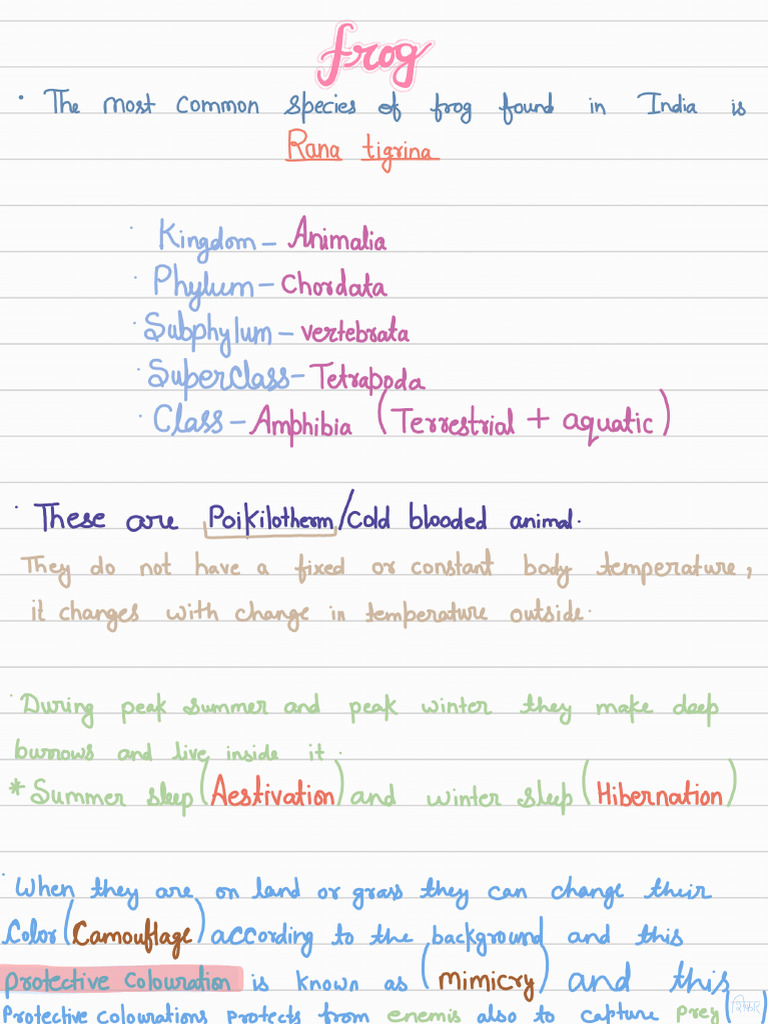 frog
• The most common species of frog found in India is
Rana tigrina
• Kingdom – Animalia
• Phylum – Chordata
• Subphylum – vertebrata
• Superclass – Tetrapoda
• Class – Amphibia (Terrestrial + aquatic)
• These are Poikilotherm/cold blooded animal.
They do not have a fixed or constant body temperature,
it changes with change in temperature outside.
• During peak summer and peak winter they make deep
burrows and live inside it.
* Summer sleep (Aestivation) and winter sleep (Hibernation)
• When they are on land or grass they can change their
Color (Camouflage) according to the background and this
protective colouration is known as (mimicry) and this
Protective colourations protects from enemis also to capture prey (शिकार)